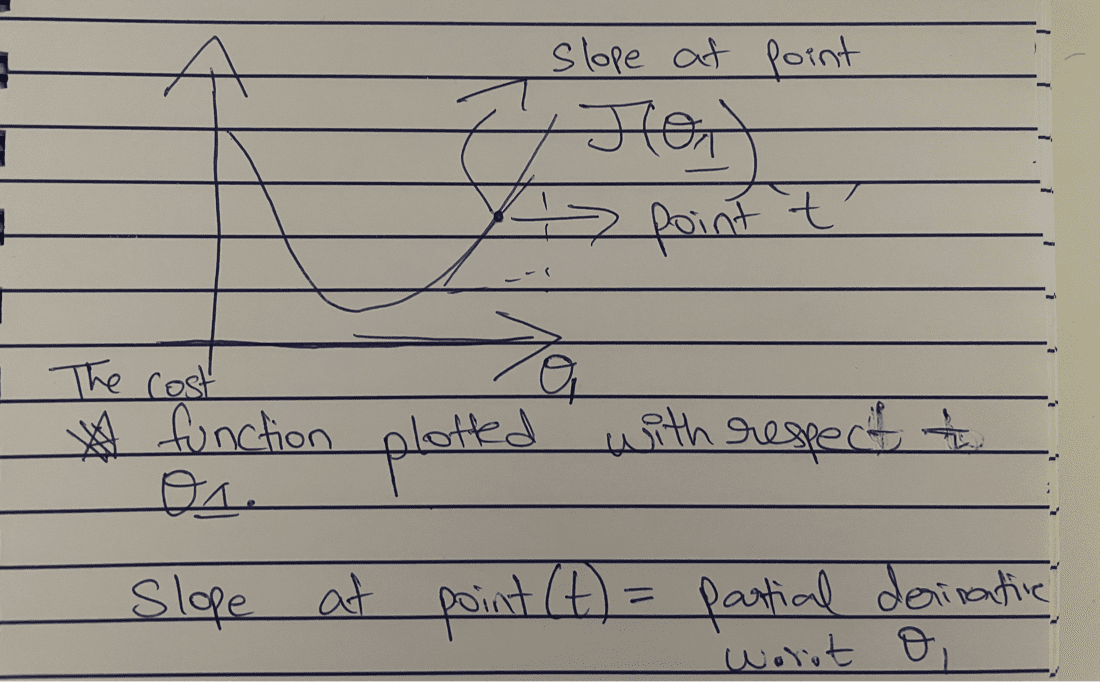 Slope at point
J(θ1)
point 't'
θ1
The cost
function plotted with respect to
θ1.
Slope at point (t) = partial derivative
w.r.t θ1